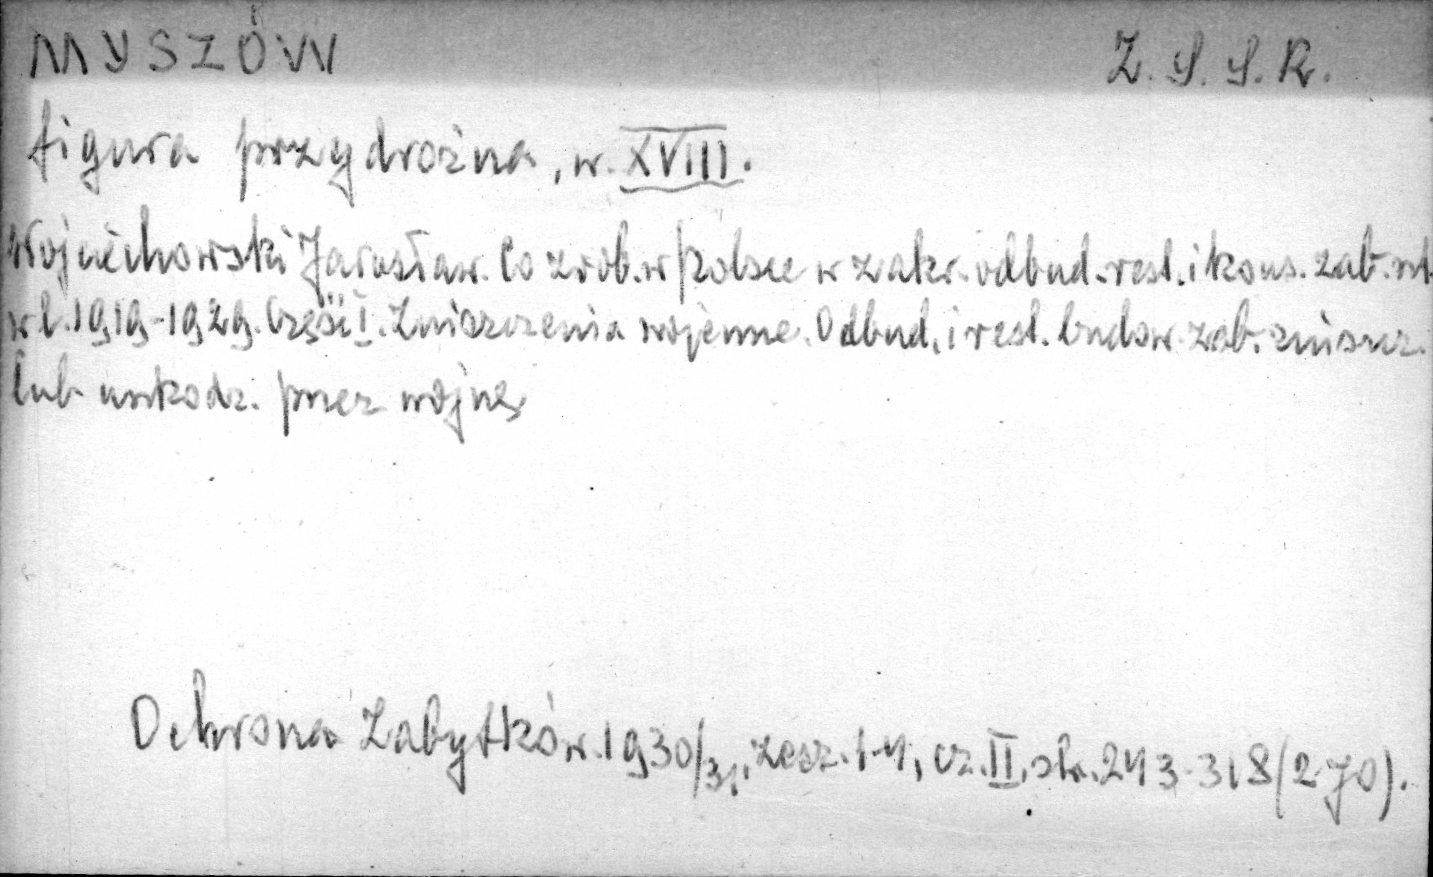 MYSZÓW Z.S.S.R.
figura przydrożna, w. XVIII.
Wojciechowski Jarosław. Co zrob. w Polsce w zakr. odbud. rest. i kons. zab. szt.
w l. 1919-1929. Część I. Zniszczenia wojenne. Odbud. i rest. budow. zab. zniszcz.
lub uszkodz. przez wojnę
Ochrona Zabytków 1930/31, zesz. 1-4, cz. II, str. 243-318 (270).